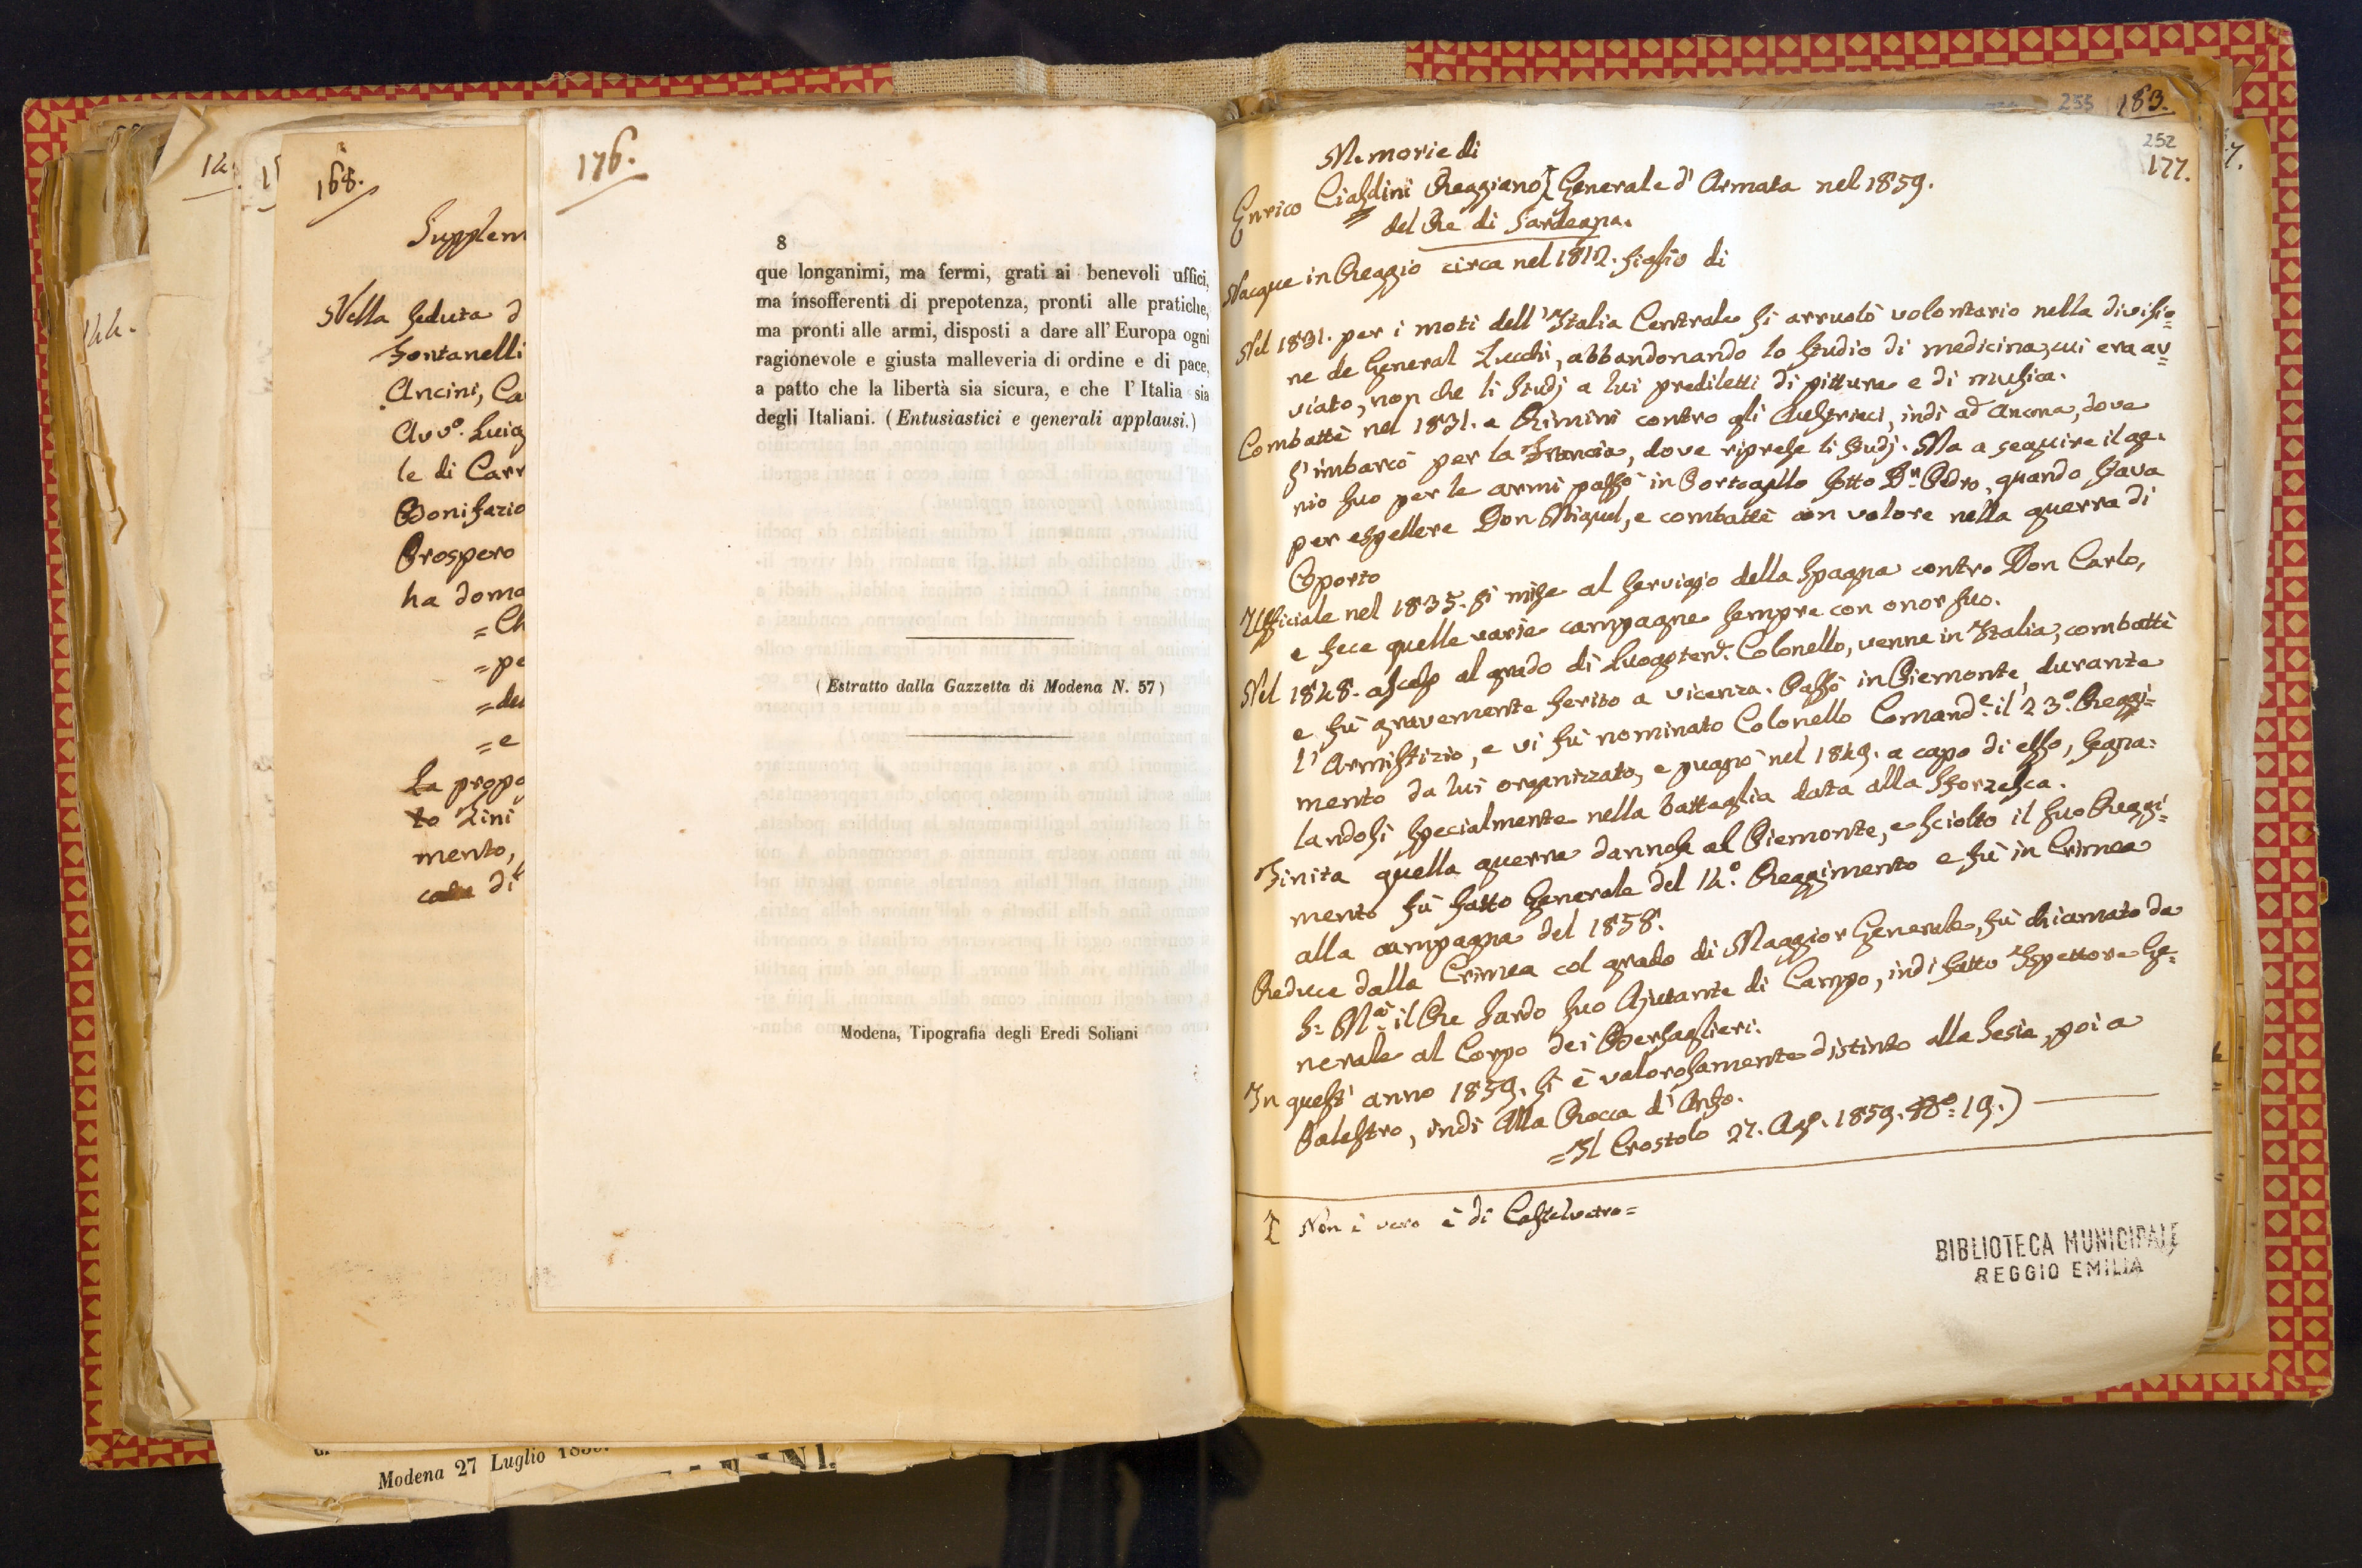 14.
144.
168.
Supplem
Nella seduta d
Fontanelli
Ancini, Ca
Avv.º Luig
le di Carr
Bonifazio
Prospero
ha doma
= Ch
= pe
= de
= e
La propo
to Zini
mento,
di
Modena 27 Luglio
176.
8
que longanimi, ma fermi, grati ai benevoli uffici,
ma insofferenti di prepotenza, pronti alle pratiche,
ma pronti alle armi, disposti a dare all' Europa ogni
ragionevole e giusta malleveria di ordine e di pace,
a patto che la libertà sia sicura, e che l' Italia sia
degli Italiani. (Entusiastici e generali applausi.)
(Estratto dalla Gazzetta di Modena N. 57)
Modena, Tipografia degli Eredi Soliani
255 183.
252
177.
Memorie di
Enrico Cialdini Reggiano Generale d' Armata nel 1859.
del Re di Sardegna.
Nacque in Reggio circa nel 1812. figlio di
Nel 1831. per i moti dell' Italia Centrale si arruolò volontario nella divisio=
ne de General Zucchi, abbandonando lo studio di medicina, cui era av=
viato, non che li studj a lui prediletti di pittura e di musica.
Combattè nel 1831. a Rimini contro gli Austriaci, indi ad Ancona, dove
s' imbarcò per la Francia, dove riprese li studj. Ma a seguire il ge=
nio suo per le armi passò in Portogallo sotto Dn. Pedro, quando stava
per espellere Don Miguel, e combattè con valore nella guerra di
Oporto
Ufficiale nel 1835. si mise al servigio della Spagna contro Don Carlo,
e fece quelle varie campagne sempre con onor suo.
Nel 1848. asceso al grado di Luogoten.e Colonello, venne in Italia, combattè
e fù gravemente ferito a Vicenza. Passò in Piemonte durante
l' Armistizio, e vi fù nominato Colonello Comand.e il 23.º Reggi=
mento da lui organizzato, e pugnò nel 1849. a capo di esso, segna=
landosi specialmente nella battaglia data alla Sforzesca.
Finita quella guerra dannosa al Piemonte, e sciolto il suo Reggi=
mento fù fatto Generale del 14.º Reggimento e fù in Crimea
alla campagna del 1858.
Reduce dalla Crimea col grado di Maggior Generale, fù chiamato da
S: M.à il Re Sardo suo Ajutante di Campo, indi fatto Ispettore Ge=
nerale al Corpo dei Bersaglieri.
In quest' anno 1859. si è valorosamente distinto alla Sesia, poi a
Palestro, indi alla Rocca d' Anfo.
= Il Crostolo 27. Ag.º 1859. Nº: 19.)
Non è vero è di Castelvetro=
BIBLIOTECA MUNICIPALE
REGGIO EMILIA